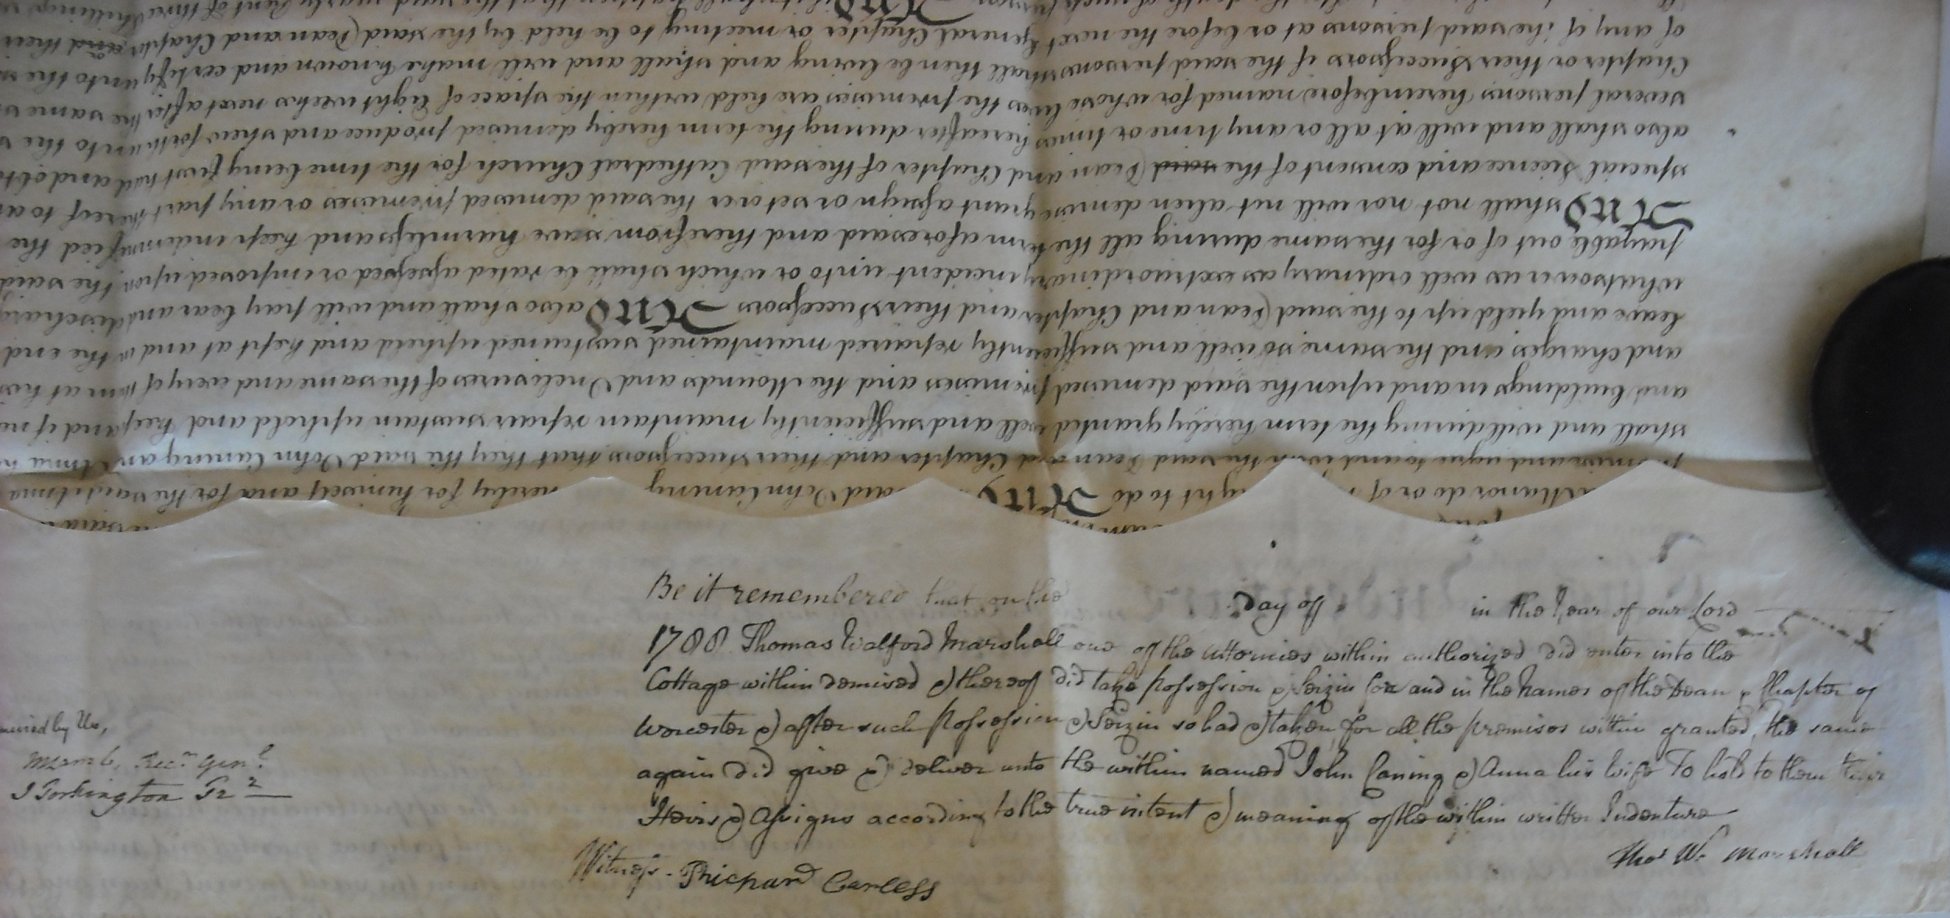 Manor do or of right to do And said John Caning hereby for himself and for the said Anna
promise and agree to and with the said Dean and Chapter and their Successors that they the said John Caning and Anna
shall and will during the term hereby granted well and sufficiently maintain repair sustain uphold and keep and if
and buildings in and upon the said demised premises and the Mounds and Inclosures of the same and every of them at his
and charges and the same so well and sufficiently repaired maintained sustained upheld and kept at and in the end
leave and yield up to the said Dean and Chapter and their Successors And also shall and will pay bear and discharge
whatsoever as well ordinary as extraordinary incident unto or which shall be rated assessed or imposed upon the said
payable out of or for the same during all the term aforesaid and therefrom save harmless and keep indemnified the
And shall not nor will not alien demise grant assign or set over the said demised premises or any part thereof to a
special licence and consent of the said Dean and Chapter of the said Cathedral Church for the time being first had and obt
also shall and will at all or any time or times hereafter during the term hereby demised produce and shew forth unto the
several persons hereinbefore named for whose lives the premises are held within the space of Eight weeks next after the same
Chapter or their Successors if the said persons shall then be living and shall and will make known and certify unto the
of any of the said persons at or before the next General Chapter or meeting to be held by the said Dean and Chapter and their
And
Be it remembered that on the Day of in the Year of our Lord
1788 Thomas Walford Marshall one of the Attornies within authorized did enter into the
Cottage within demised & thereof did take Possession & Seizin for and in the Names of the Dean & Chapter of
Worcester & after such Possession & Seizin so had & taken for all the premises within granted, the same
again did give & deliver unto the within named John Caning & Anna his Wife To hold to them their
Heirs & Assigns according to the true intent & meaning of the within written Indenture
Thos W. Marshall
Witness - Richard Carless
by Us,
Recr Genl
J Torkington Tr